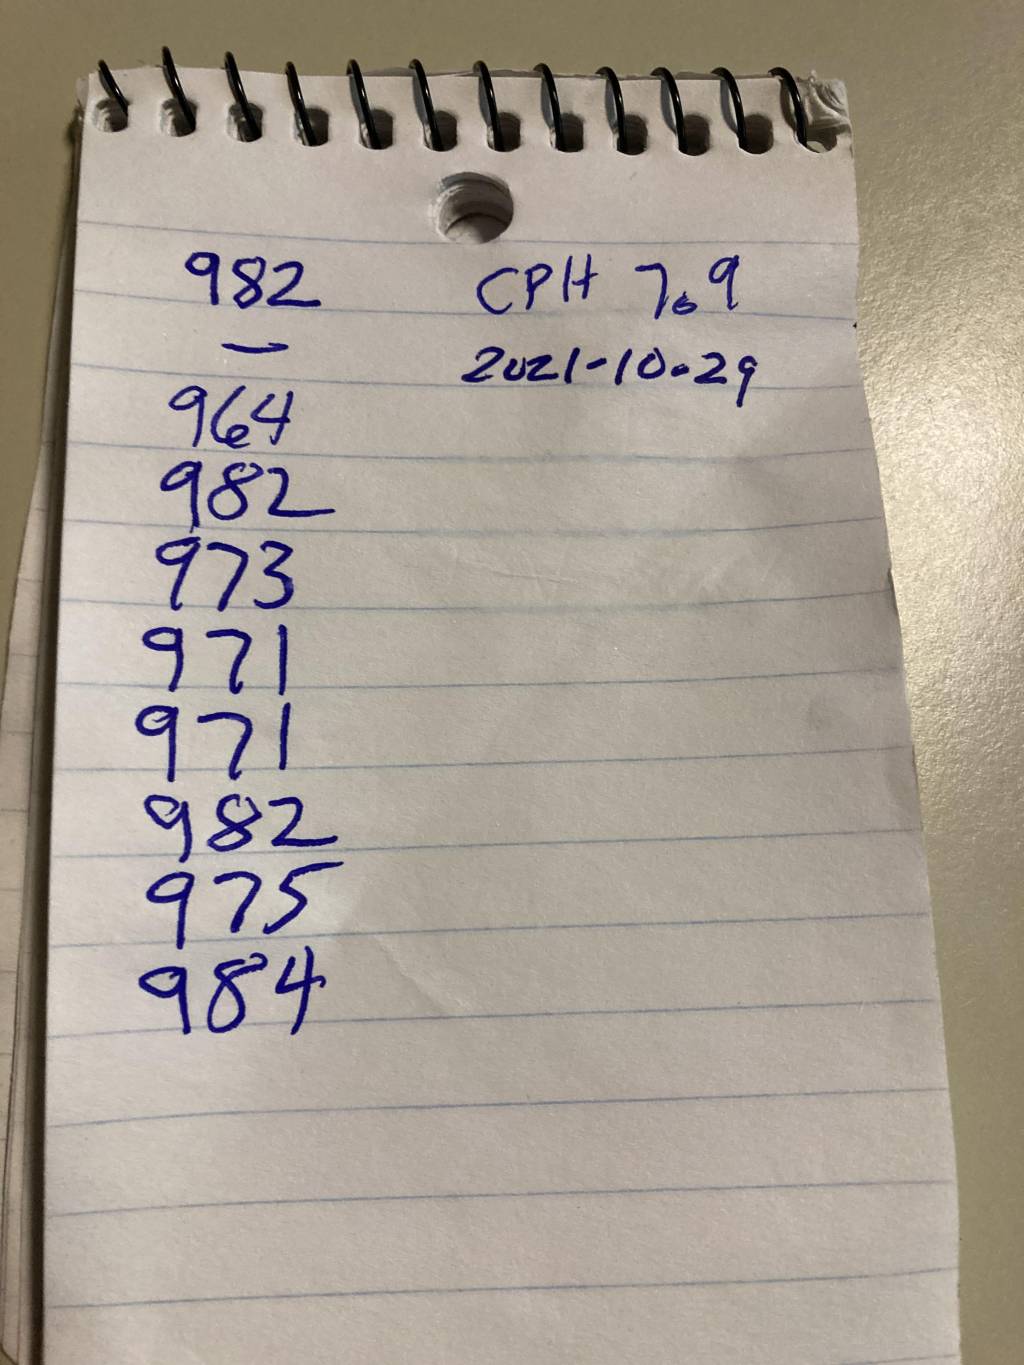 982 CPH 7.9
— 2021-10-29
964
982
973
971
971
982
975
984